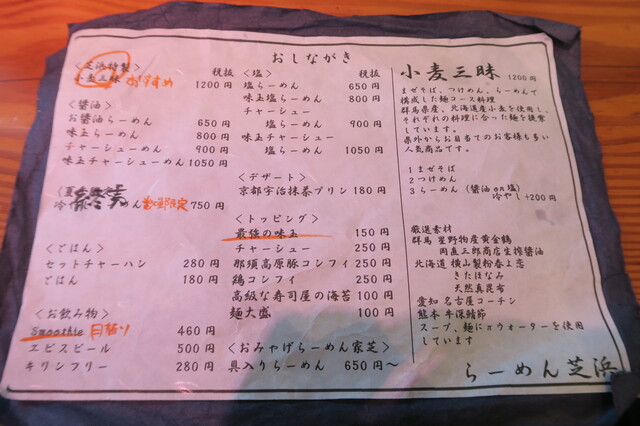 おしながき
＜芝浜特製＞ 税抜
小麦三昧 おすすめ 1200円
＜醤油＞
お醤油らーめん 650円
味玉らーめん 800円
チャーシューめん 900円
味玉チャーシューめん 1050円
めん 数量限定 750円
＜ごはん＞
セットチャーハン 280円
ごはん 180円
＜お飲み物＞
Smoothie 日替り 460円
ヱビスビール 500円
キリンフリー 280円
＜塩＞ 税抜
塩らーめん 650円
味玉塩らーめん 800円
チャーシュー
塩らーめん 900円
味玉チャーシュー
塩らーめん 1050円
＜デザート＞
京都宇治抹茶プリン 180円
＜トッピング＞
最強の味玉 150円
チャーシュー 250円
那須高原豚コンフィ 250円
鶏コンフィ 250円
高級な寿司屋の海苔 100円
麺大盛 100円
＜おみやげらーめん家芝＞
具入りらーめん 650円～
小麦三昧 1200円
まぜそば、つけめん、らーめんで
構成した麺コース料理
群馬県産、北海道産小麦を使用し、
それぞれの料理に合った麺を提案
しています。
県外からお目当てのお客様も多い
人気商品です。
1 まぜそば
2 つけめん
3 らーめん （醤油 or 塩）
冷やし+200円
厳選素材
群馬 星野物産黄金鶴
岡直三郎商店生搾醤油
北海道 横山製粉春よ恋
きたほなみ
天然真昆布
愛知 名古屋コーチン
熊本 牛深鯖節
スープ、麺にπウォーターを使用
しています
らーめん芝浜